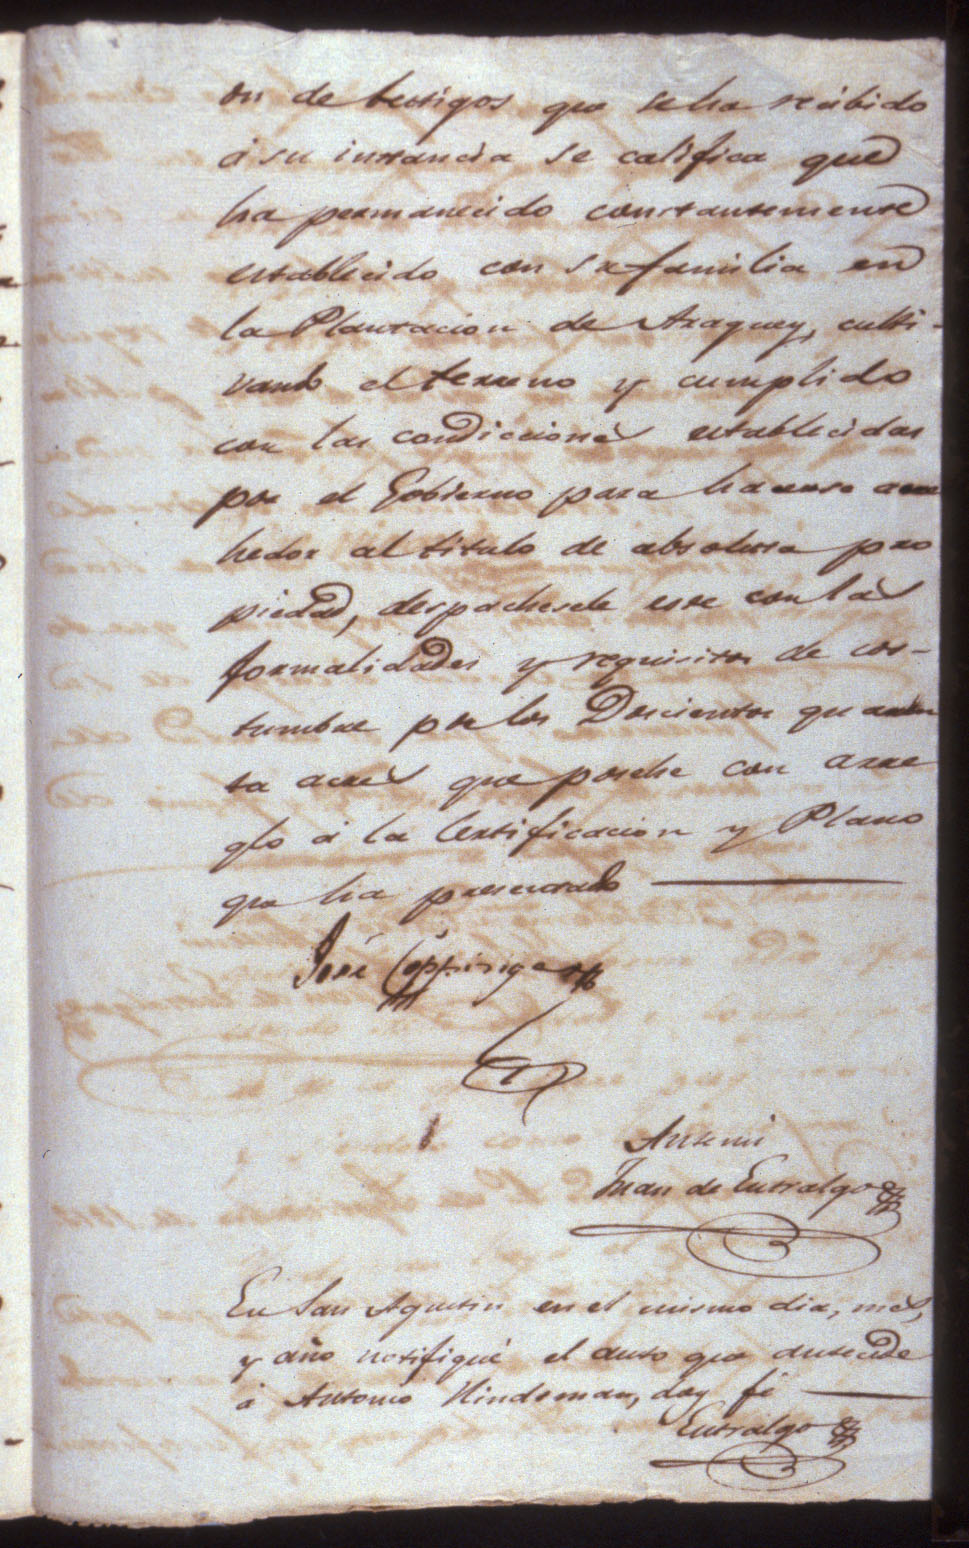 on de testigos que se ha recibido
á su instancia se califica que
ha permanecido constantemente
establecido con su familia en
la Plantacion de Araquey, culti-
vando el terreno y cumplido
con las condicciones establecidas
por el Gobierno para hacerse acre
hedor al titulo de absoluta pro
piedad, despachesele este con las
formalidades y requisitos de cos-
tumbre por los Doscientos quaren
ta acres que poséhe con arre
glo á la Certificacion y Plano
que ha presentado
José Coppinger
Antemi
Juan de Entralgo
En San Agustin en el mismo dia, mes,
y año notifiqué el auto que antecede
á Antonio Hindsman, doy fé
Entralgo